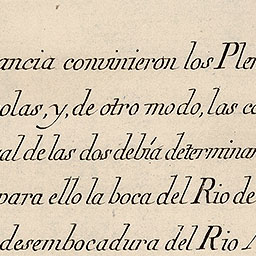 ancia convinieron los Plen
olas, y, de otro modo, las co
al de las dos debía determinar
para ello la boca del Rio de
desembocadura del Rio A